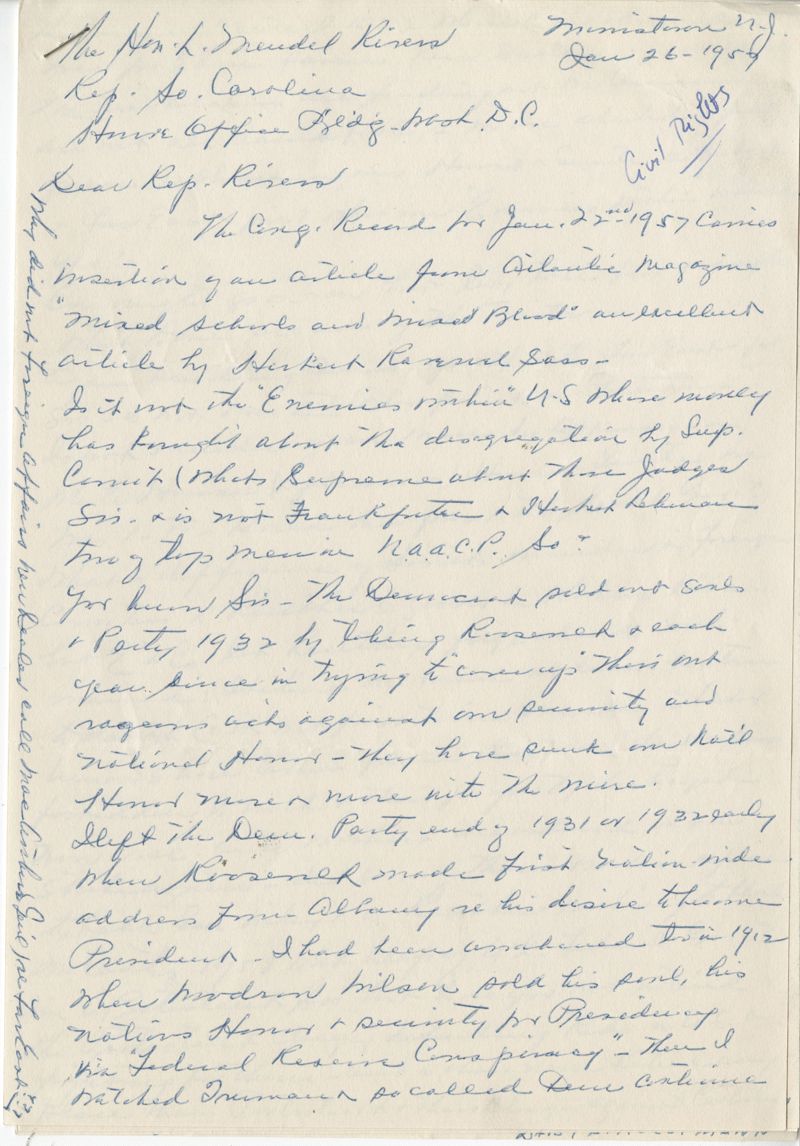 The Hon. L. Mendel Rivers
Rep. So. Carolina
House Office Bldg - Wash. D.C.
Morristown N.J.
Jan 26 - 1957
Civil Rights
Dear Rep. Rivers
The Cong. Record for Jan. 22nd 1957 Carries
insertion of an article from Atlantic Magazine
"Mixed Schools and Mixed Blood" an excellent
article by Herbert Ravenel Sass -
Is it not the "Enemies within" U-S whose money
has brought about the desegregation by Sup.
Court (Whats Supreme about those Judges
Sir. & is not Frankfurter & Herbert Lehman
two of top men in N.A.A.C.P. So?
You know Sir - The Democrat sold out souls
& Party 1932 by taking Roosevelt & each
year since in trying to "cover up" their out
rageous acts against our security and
National Honor - They have sunk our Nat'l
Honor more & more into the mire.
I left the Dem. Party end of 1931 or 1932 early
when Roosevelt made first Nation-wide
address from Albany re his desire to become
President - I had been awakened to in 1912
when Woodrow Wilson sold his soul, his
Nations Honor & security for Presidency
via "Federal Reserve Conspiracy" - Then I
watched Truman so called Dem continue
Why did not Foreign Affairs call MacArthur